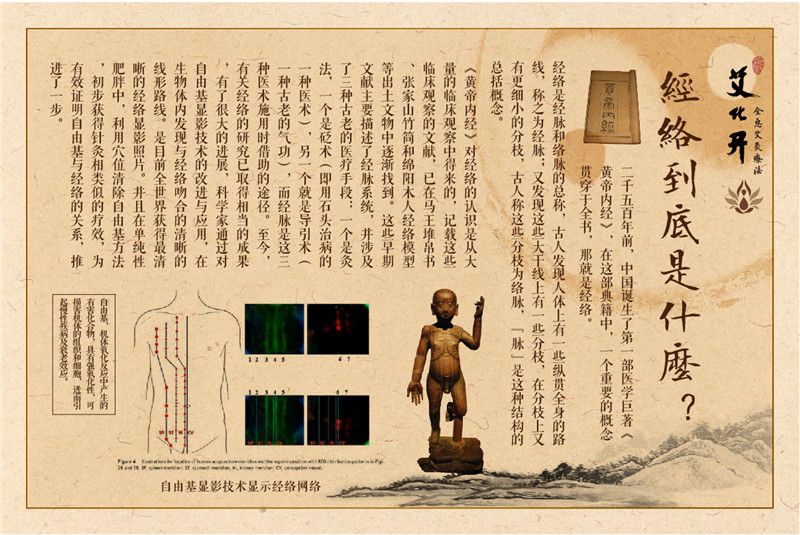 艾化开
全息艾灸療法
經絡到底是什麼？
黃帝內經
二千五百年前，中国诞生了第一部医学巨著《
黄帝内经》，在这部典籍中，一个重要的概念
贯穿于全书，那就是经络。
经络是经脉和络脉的总称，古人发现人体上有一些纵贯全身的路
线，称之为经脉；又发现这些大干线上有一些分枝，在分枝上又
有更细小的分枝，古人称这些分枝为络脉，「脉」是这种结构的
总括概念。
《黄帝内经》对经络的认识是从大
量的临床观察中得来的，记载这些
临床观察的文献，已在马王堆帛书
、张家山竹简和绵阳木人经络模型
等出土文物中逐渐找到。这些早期
文献主要描述了经脉系统，并涉及
了三种古老的医疗手段：一个是灸
法，一个是砭术（即用石头治病的
一种医术），另一个就是导引术（
一种古老的气功），而经脉是这三
种医术施用时借助的途径。至今，
有关经络的研究已取得相当的成果
，有了很大的进展，科学家通过对
自由基显影技术的改进与应用，在
生物体内发现与经络吻合的清晰的
线形路线。是目前全世界获得最清
晰的经络显影照片。并且在单纯性
肥胖中，利用穴位清除自由基方法
，初步获得针灸相类似的疗效，为
有效证明自由基与经络的关系，推
进了一步。
自由基，机体氧化反应中产生的
有害化合物，具有强氧化性，可
损害机体的组织和细胞，进而引
起慢性疾病及衰老效应。
1 2 3 4 5
6 7
1 2 3 4 5
6 7
Figure 4 Illustrations for location of human acupuncture meridian and the superimposition with ROS distribution patterns in Figs.
2B and 3B. SP, spleen meridian; ST, stomach meridian; KI, kidney meridian; CV, conception vessel.
自由基显影技术显示经络网络